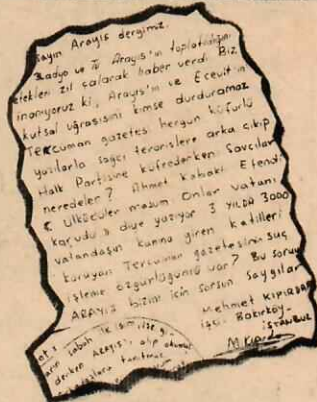 Sayın Arayış dergimiz.
Radyo ve TV Arayış'ın toplatıldığını
etekleri zil çalarak haber verdi. Biz
inanıyoruz ki, Arayış'ın ve Ecevit'in
kutsal uğraşısını kimse durduramaz
Tercüman gazetesi hergün küfürlü
yazılarla sağcı teröristlere arka çıkıp
Halk Partisine küfrederken Savcılar
neredeler? Ahmet Kabaklı Efendi
Ülkücüler masum. Onlar vatanı
korudu diye yazıyor 3 yılda 3000
vatandaşın kanına giren katilleri
koruyan Tercüman gazetesinin suç
işleme özgürlüğümü var? Bu soruyu
ARAYIŞ bizim için sorsun Saygılar
Mehmet KIPIRDA
işçi Bakırköy-
İSTANBUL
sabah ilk işim ise
derken Arayışı, alıp okumak
tanıtmak